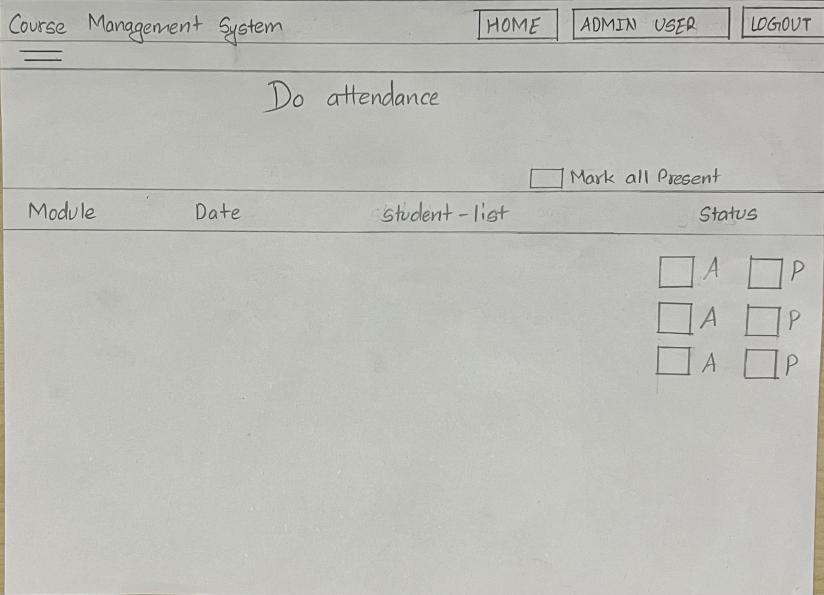 Course Management System HOME ADMIN USER LOGOUT
Do attendance
Mark all Present
Module Date student-list Status
A P
A P
A P